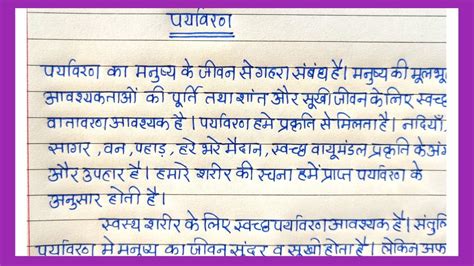 पर्यावरण
पर्यावरण का मनुष्य के जीवन से गहरा संबंध है। मनुष्य की मूलभू
आवश्यकताओं की पूर्ति तथा शांत और सुखी जीवन के लिए स्वच्छ
वातावरण आवश्यक है। पर्यावरण हमे प्रकृति से मिलता है। नदियाँ,
सागर, वन, पहाड़, हरे भरे मैदान, स्वच्छ वायुमंडल प्रकृति के अं
और उपहार है। हमारे शरीर की रचना हमें प्राप्त पर्यावरण के
अनुसार होती है।
स्वस्थ शरीर के लिए स्वच्छ पर्यावरण आवश्यक है। संतुलि
पर्यावरण मे मनुष्य का जीवन सुंदर व सुखी होता है। लेकिन अफ